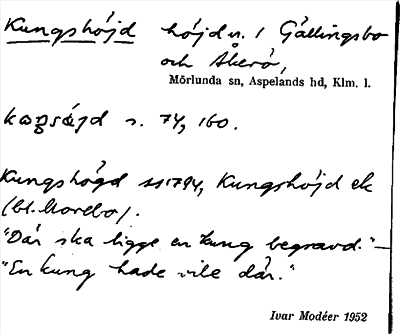 Kungshöjd höjd n. / Gällingsbo
och Åkerö,
Mörlunda sn, Aspelands hd, Klm. l.
s. 74, 160.
Kungshögd 1794, Kungshöjd ek
(bl. Morebo).
"Där ska ligge en kung begravd." —
"En kung hade vile där."
Ivar Modéer 1952